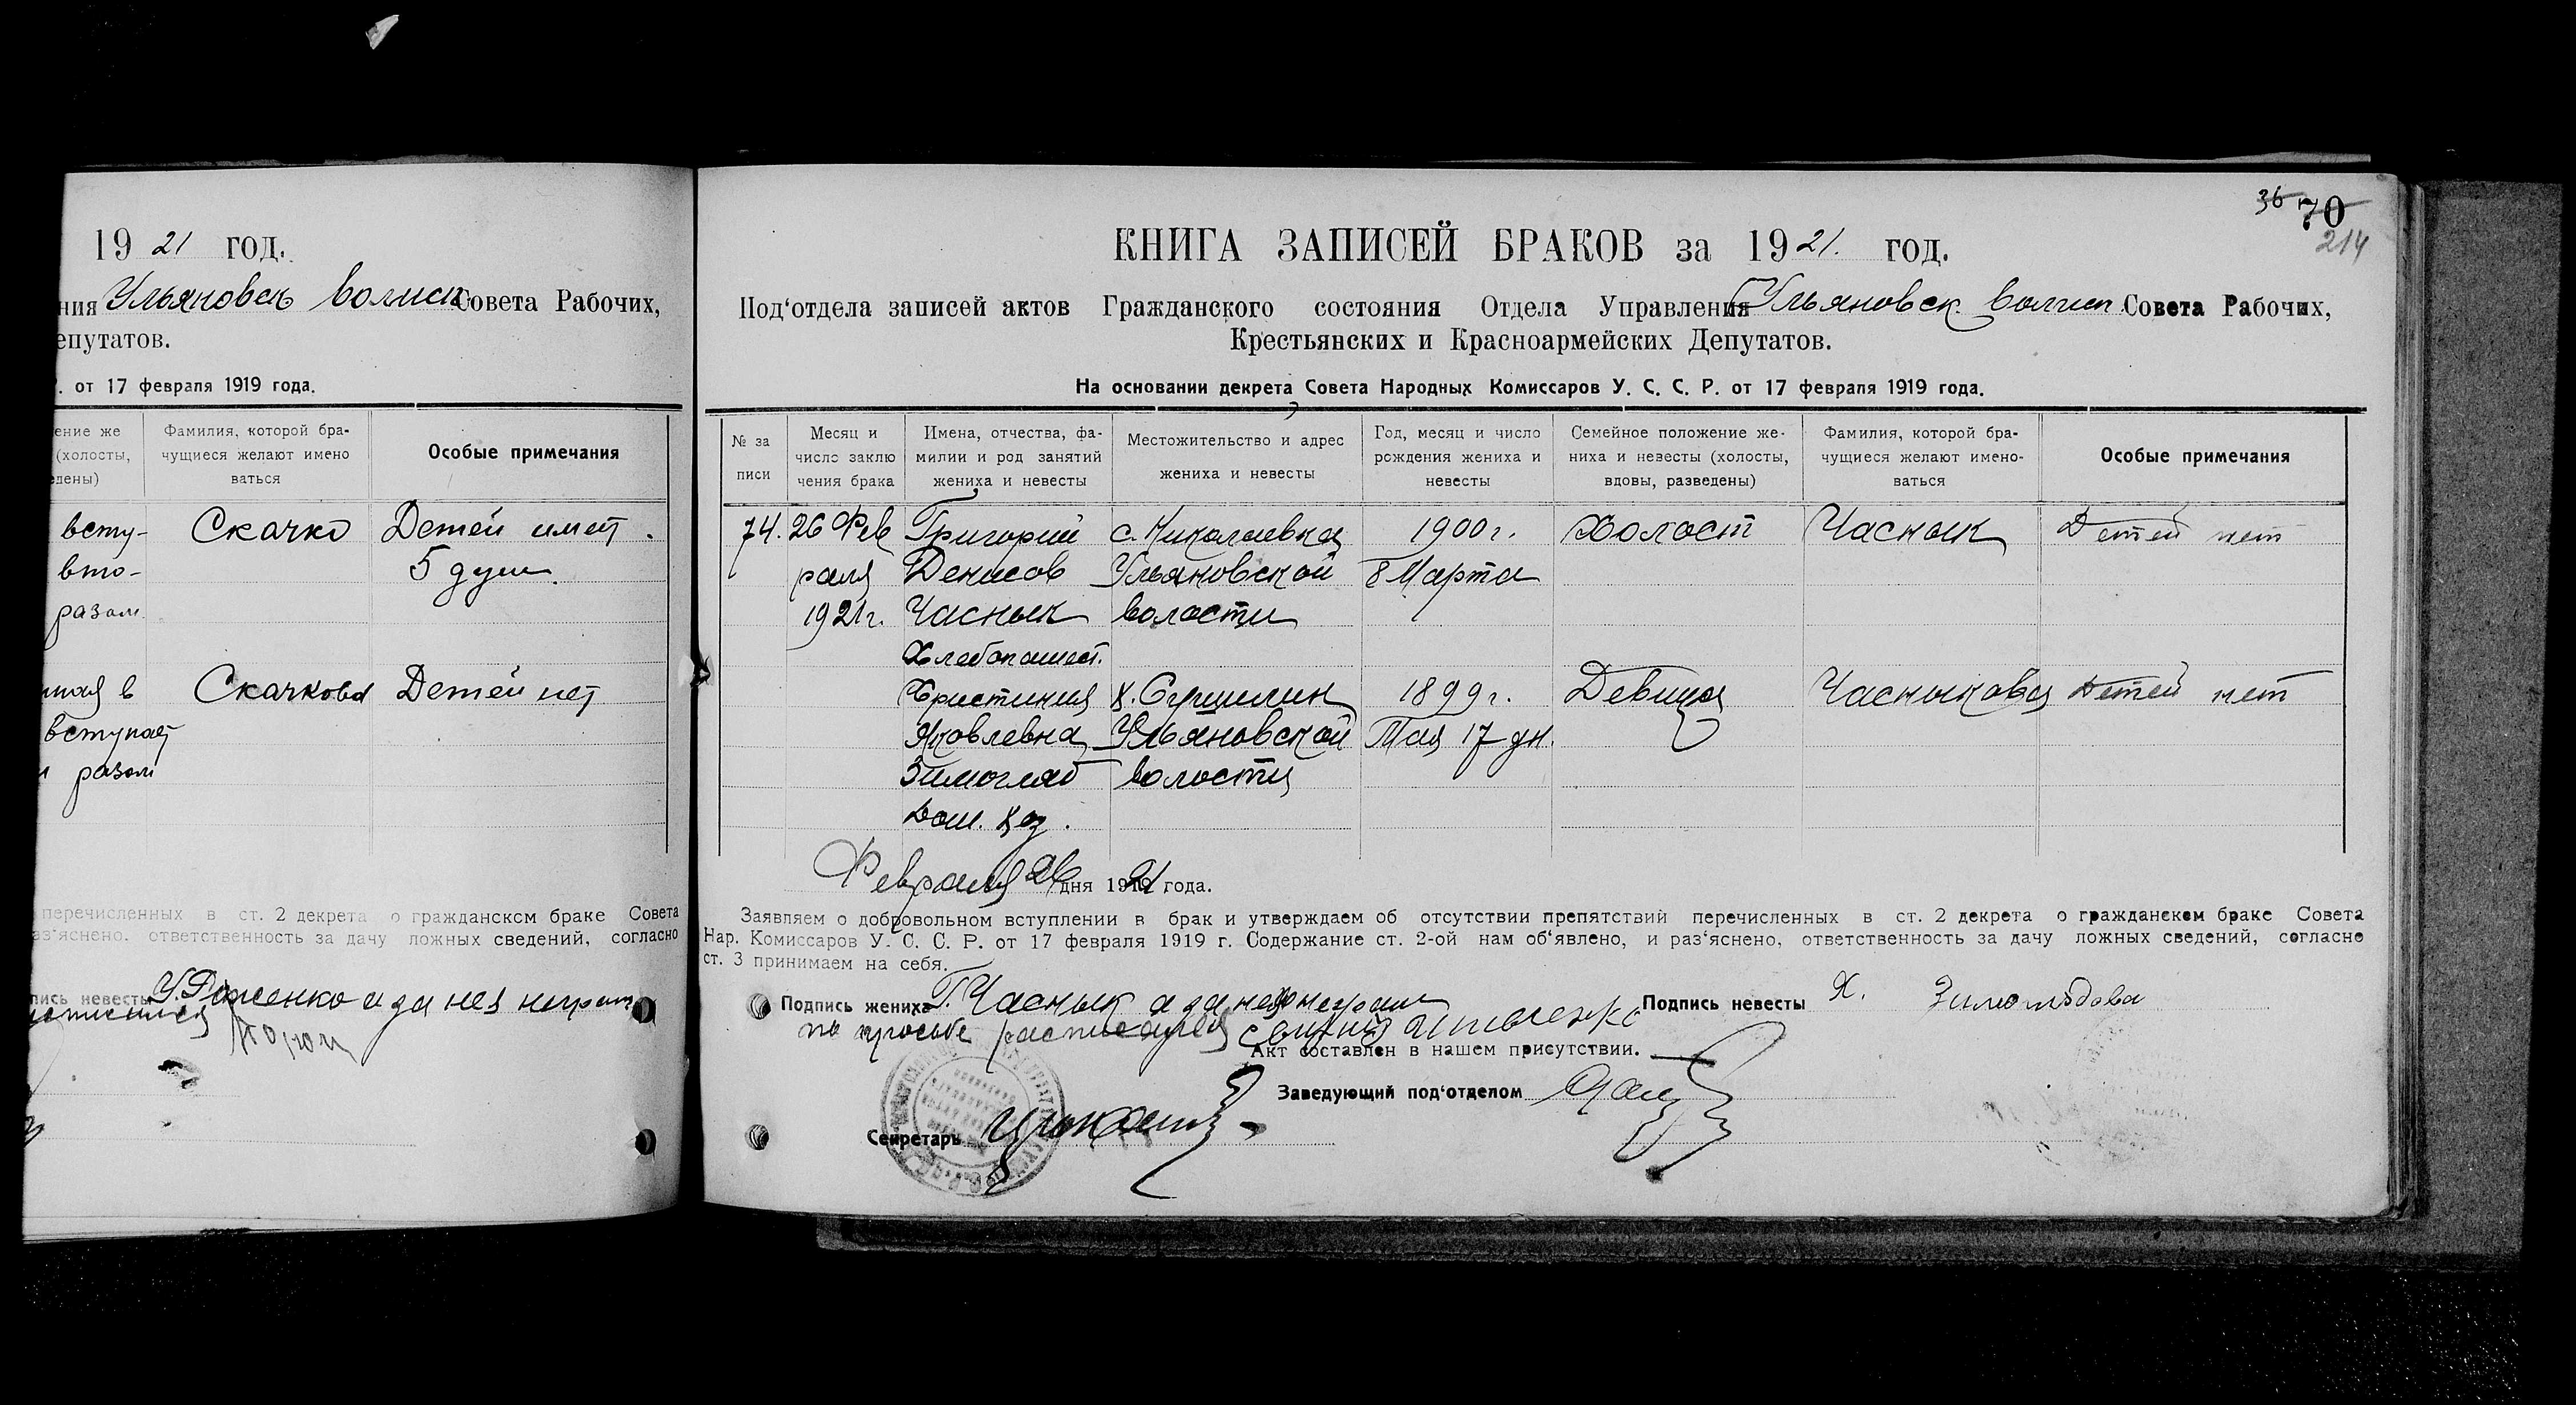 19 21 год.
ния Ульяновск волисп. Совета Рабочих,
епутатов.
. от 17 февраля 1919 года.
ение же
(холосты,
дены)
Фамилия, которой бра-
чущиеся желают имено
ваться
Особые примечания
всту- Скачко Детей имеет.
вто- 5 душ.
разом
шая в Скачкова Детей нет
вступает
разом
перечисленных в ст. 2 декрета о гражданском браке Совета
аз'яснено. ответственность за дачу ложных сведений, согласно
пись невесты а за нея неграм
36 70
214
КНИГА ЗАПИСЕЙ БРАКОВ за 1921. год.
Под'отдела записей актов Гражданского состояния Отдела Управления Ульяновск. волисп. Совета Рабочих,
Крестьянских и Красноармейских Депутатов.
На основании декрета Совета Народных Комиссаров У. С. С. Р. от 17 февраля 1919 года.
№ за
писи
Месяц и
число заклю
чения брака
Имена, отчества, фа-
милии и род занятий
жениха и невесты
Местожительство и адрес
жениха и невесты
Год, месяц и число
рождения жениха и
невесты
Семейное положение же-
ниха и невесты (холосты,
вдовы, разведены)
Фамилия, которой бра-
чущиеся желают имено-
ваться
Особые примечания
74. 26 Фев Григорий с. Николаевка 1900 г. Холост Часнык Детей нет
раля Денисов Ульяновской 8 Марта
1921 г. Часнык волости
Хлебопашест.
Христиния х. Ульяновской 1899 г. Девица Часныкова Детей нет
Яковлевна Ульяновской Мая 17 дн.
Зимогляд волости
Дом. хоз.
Февраля 26 дня 1921 года.
Заявляем о добровольном вступлении в брак и утверждаем об отсутствии препятствий перечисленных в ст. 2 декрета о гражданском браке Совета
Нар. Комиссаров У. С. С. Р. от 17 февраля 1919 г. Содержание ст. 2-ой нам об'явлено, и раз'яснено, ответственность за дачу ложных сведений, согласно
ст. 3 принимаем на себя.
Подпись жениха Г. Часнык а за нея неграм Подпись невесты Х.
по просьбе расписался
Акт составлен в нашем присутствии.
Заведующий под'отделом
Секретарь